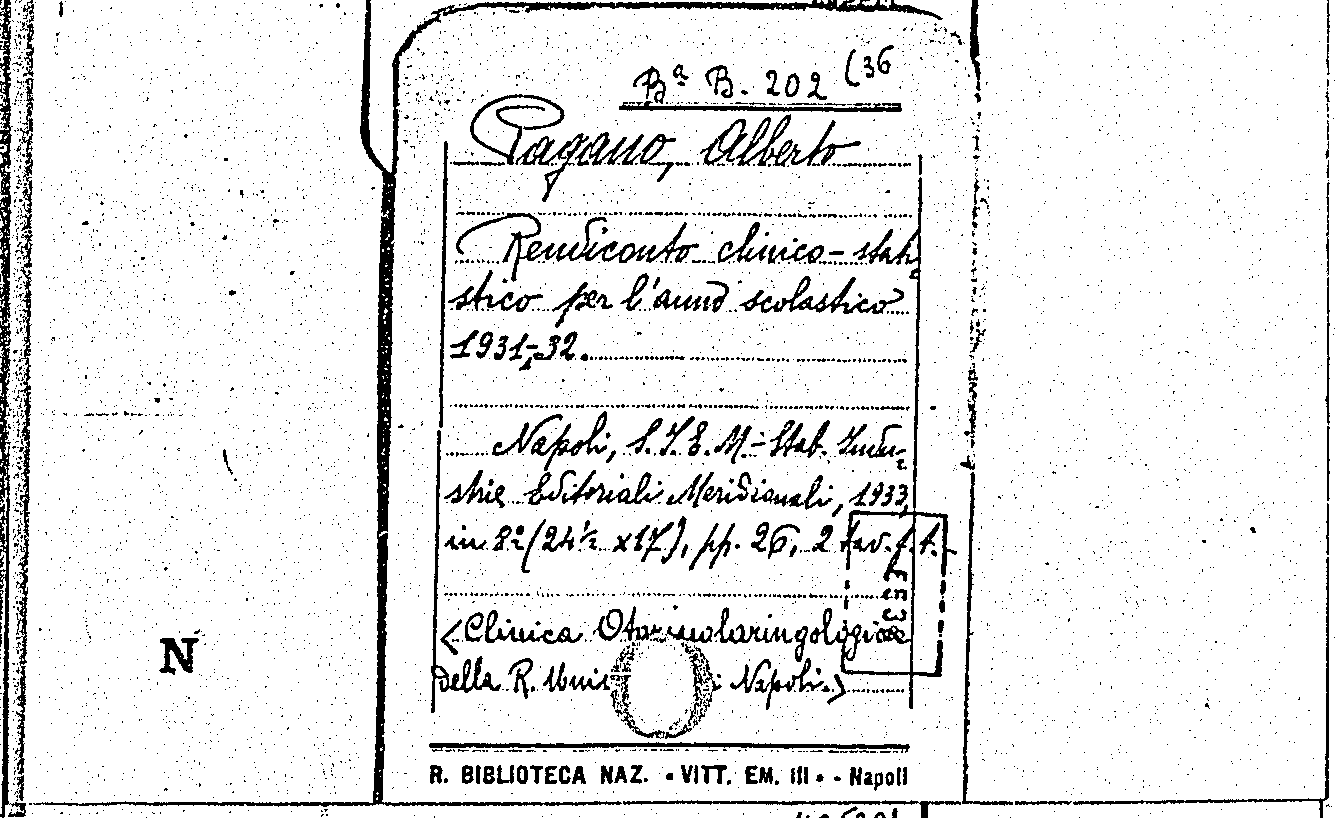 Bª B. 202 (36
Pagano, Alberto
Rendiconto clinico-stati-
stico per l'anno scolastico
1931-32.
Napoli, S.I.E.M.-Stab. Indu-
strie Editoriali Meridionali, 1933,
in 8º (24½ x17), pp. 26, 2 tav. f. t.
(Clinica Otorinolaringologica
della R. Univ i Napoli.)
N
R. BIBLIOTECA NAZ. • VITT. EM. III • - Napoli